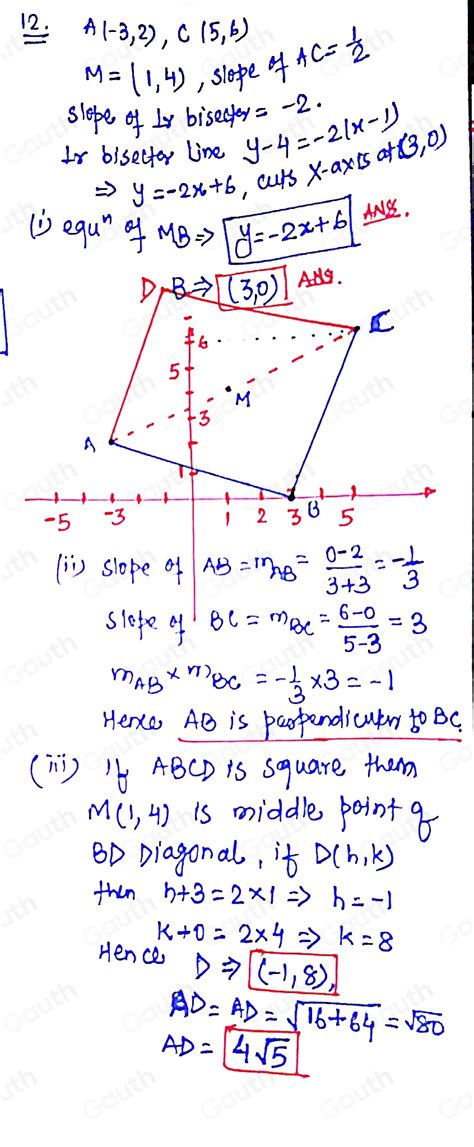 12. A(-3,2), C(5,6)
M=(1,4), slope of AC=1/2
slope of ⊥r bisector= -2.
⊥r bisector line y-4=-2(x-1)
⇒ y=-2x+6, cuts x-axis at (3,0)
(i) equⁿ of MB⇒ y=-2x+6 Ans.
B⇒ (3,0) Ans.
D
C
6
5
M
3
A
1
-5 -3 1 2 3 B 5
(ii) slope of AB=m_AB= 0-2/3+3 = -1/3
slope of BC = m_BC = 6-0/5-3 = 3
m_AB × m_BC = -1/3 ×3 = -1
Hence AB is perpendicular to BC.
(iii) If ABCD is square them
M(1,4) is middle point of
BD Diagonal, if D(h,k)
then h+3=2×1 ⇒ h=-1
k+0=2×4 ⇒ k=8
Hence D ⇒ (-1,8),
AD= AD= √16+64 = √80
AD= 4√5
Gauth